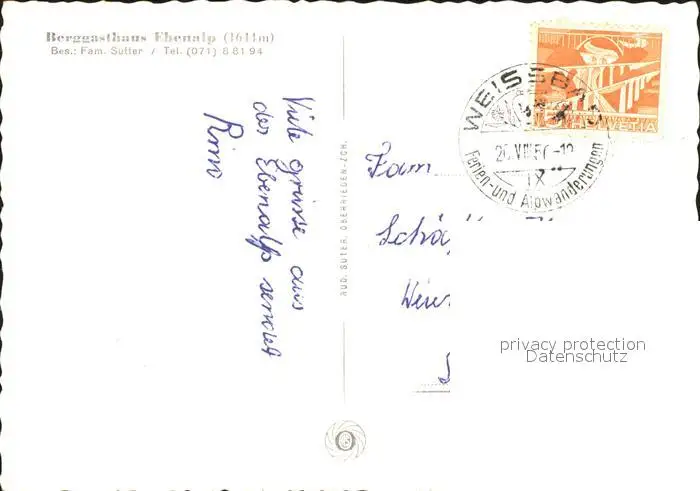 Berggasthaus Ebenalp (1644m)
Bes.: Fam. Sutter / Tel. (071) 8 81 94
Viele grüsse aus
der Ebenalp sendet
RUD. SUTER, OBERRIEDEN-ZCH.
HELVETIA
WEISSBAD
IX
Ferien- und Alpwanderungen
Fam.
privacy protection
Datenschutz